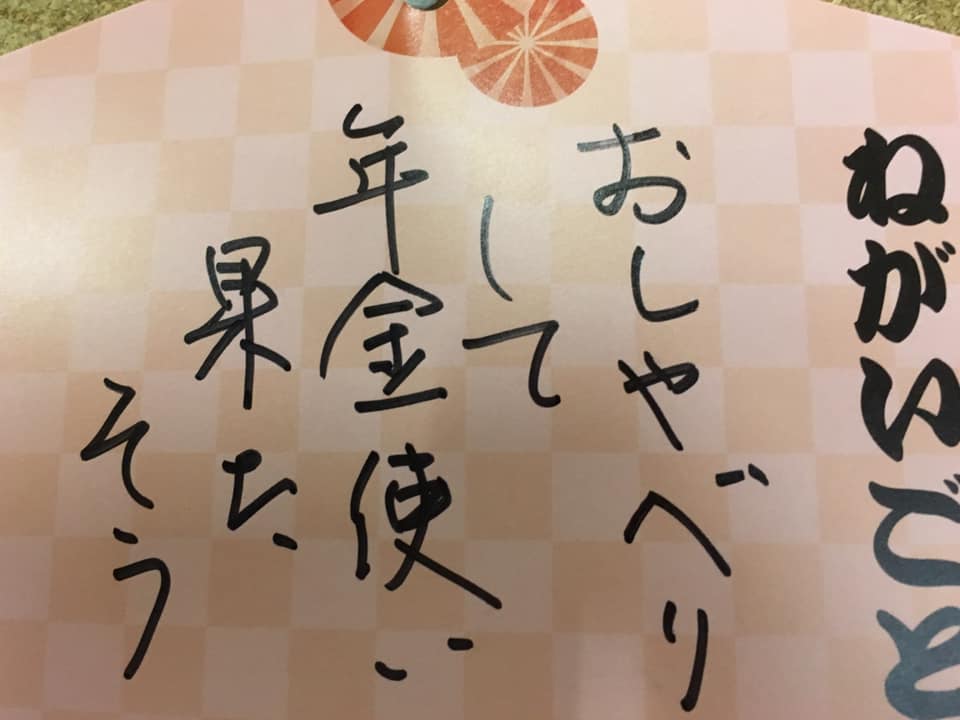 ねがいごと
おしゃべり
して
年金使い
果た
そう